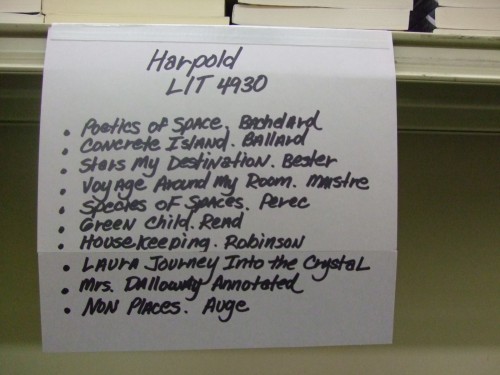 Harpold
LIT 4930
• Poetics of Space. Bachelard
• Concrete Island. Ballard
• Stars My Destination. Bester
• Voyage Around My Room. Maistre
• Species of Spaces. Perec
• Green Child. Read
• Housekeeping. Robinson
• Laura Journey Into the Crystal
• Mrs. Dalloway Annotated
• Non Places. Auge